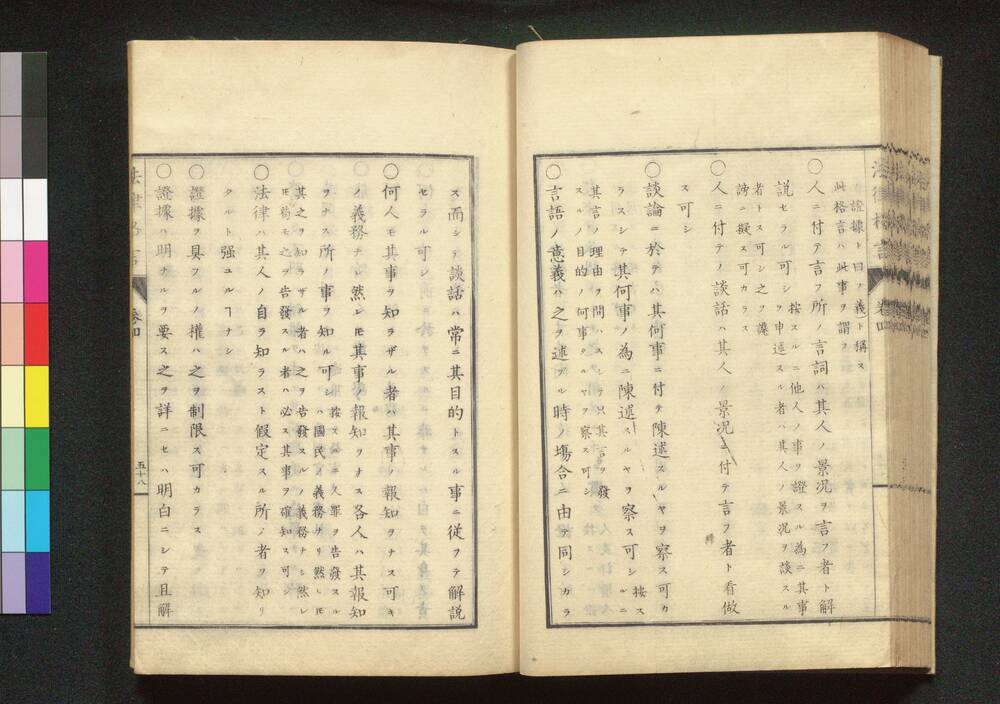 ノ證據ト曰ノ義ト稱ス
此格言ハ此事ヲ謂フ
〇人ニ付テ言フ所ノ言詞ハ其人ノ景況ヲ言フ者ト解
説セラル可シ按スルニ他人ノ事ヲ證スル為ニ其事
ヲ申述スル者ハ其人ノ景況ヲ談スル
者トス可シ之ヲ讒
謗ニ擬ス可カラス
〇人ニ付テノ談話ハ其人ノ景況ニ付テ言フ者ト看做
ス可シ
〇談論ニ於テハ其何事ニ付テ陳述スルヤヲ察ス可カ
ラスシテ其何事ノ為ニ陳述スルヤヲ察ス可シ按ス
ルニ
其言ノ理由ヲ問ハスシテ只其言ヲ發
スルノ目的ノ何事タルヤヲ察ス可シ
〇言語ノ意義ハ之ヲ述ブル時ノ塲合ニ由テ同シカラ
ス而シテ談話ハ常ニ其目的トスル事ニ從ヲテ解説
セラル可シ
〇何人モ其事ヲ知ラザル者ハ其事ノ報知ヲナス可キ
ノ義務ナシ然レ𪜈其事ノ報知ヲナス各人ハ其報知
ヲナス所ノ事ヲ知ル可シ按スルニ人罪ヲ告發スル
ハ國民ノ義務ナリ然レ𪜈
其之ヲ知ラザル者ハ之ヲ告發スルノ義務ナシ然レ
𪜈苟モ之ヲ告發スル者ハ必ス其事ヲ確知ス可シ
〇法律ハ其人ノ自ラ知ラスト假定スル所ノ者ヲ知リ
タルト强ユルヿナシ
〇證據ヲ具フルノ權ハ之ヲ制限ス可カラス
〇證據ハ明ナルヲ要ス之ヲ詳ニセハ明白ニシテ且解
法律格言
卷四
五十八
法律格言
卷四